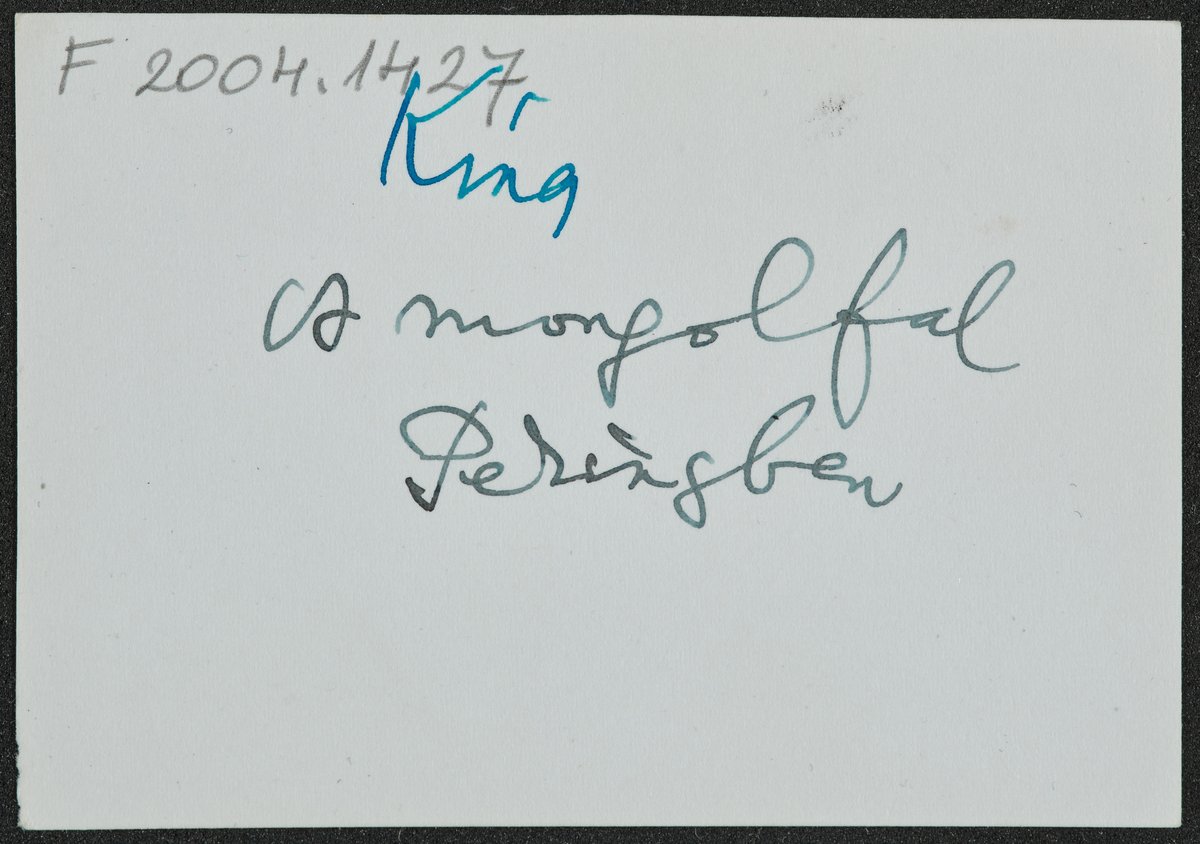 F 2004.1427
Kína
A mongol fal
Pekingben